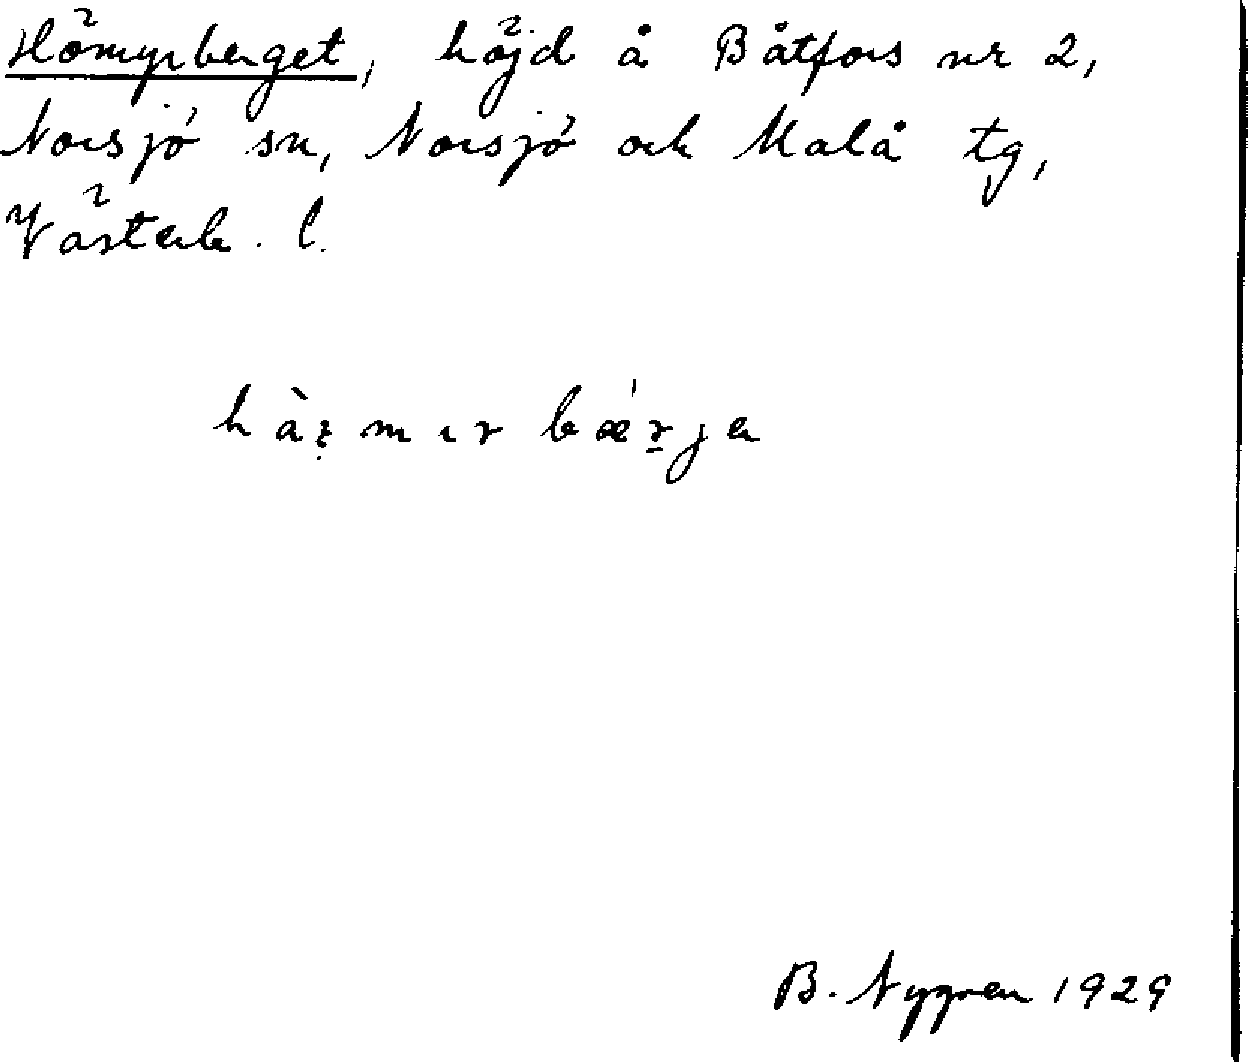 Hömyrberget, höjd å Båtfors nr 2,
Norsjö sn, Norsjö och Malå tg,
Västerb. l.
B. Nygren 1929